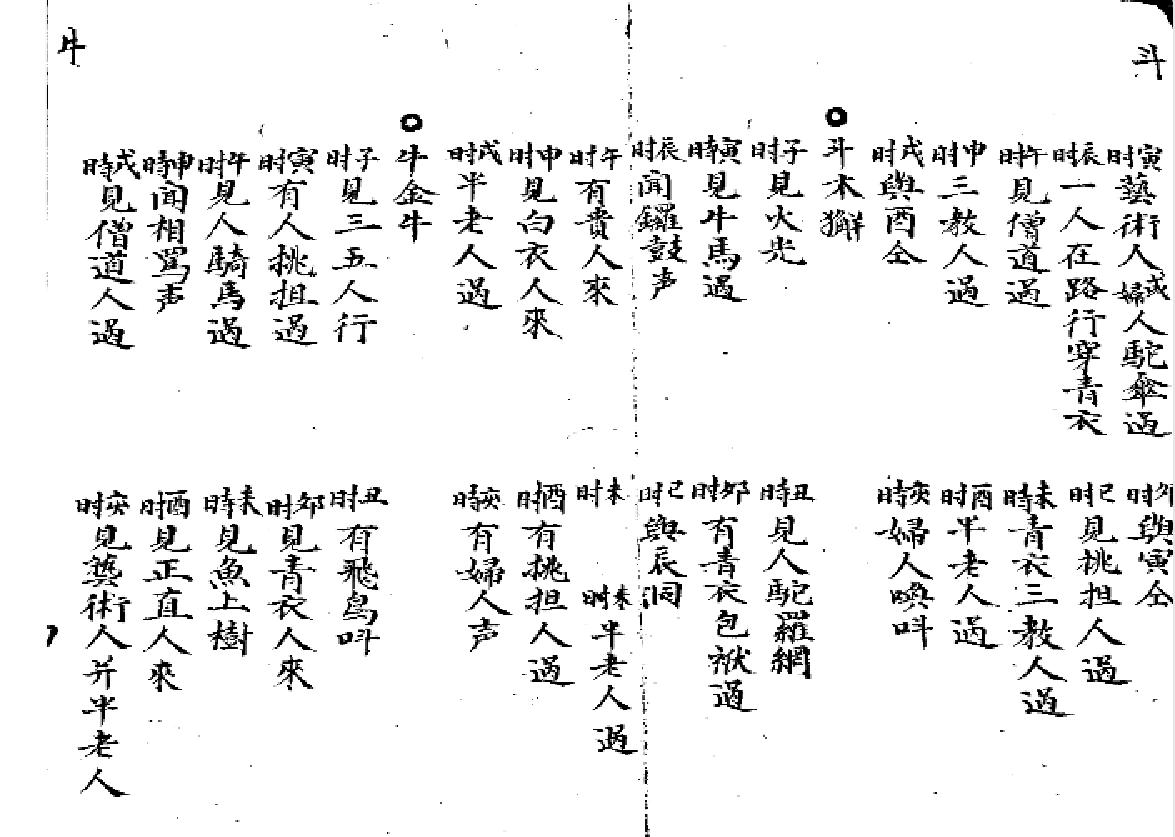 斗
寅時藝術人或婦人駝傘過
卯時與寅仝
辰時一人在路行穿青衣
巳時見挑担人過
午時見僧道过
未時青衣三教人過
申時三教人過
酉時半老人過
戌時與酉仝
亥時婦人喚呌
斗木獬
子时見火光
丑時見人駝羅網
寅時見牛馬過
卯时有青衣包袱過
辰时聞鑼鼓声
巳时與辰同
午时有貴人來
未时
未时半老人過
申时見白衣人來
酉时有挑担人過
戌時半老人過
亥時有婦人声
牛
牛金牛
子时見三五人行
丑时有飛鳥呌
寅时有人挑担過
卯时見青衣人來
午时見人騎馬過
未時見魚上樹
申時聞相罵声
酉时見正直人來
戌時見僧道人過
亥时見藝術人并半老人